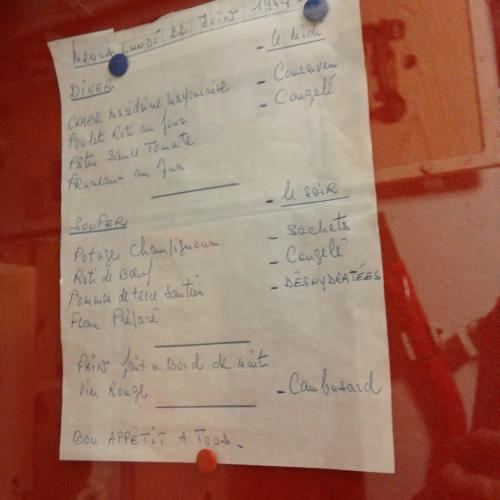 Menu Lundi 22 Juin
- le Midi
DÎNER
CRABE macédoine mayonnaise - Conserves
Poulet Roti au four - Congelé
Pâtes Sauce Tomate
Pruneaux au Jus
- le SOIR
SOUPER
Potage Champignons - Sachets
Roti de Bœuf - Congelé
Pommes de terre Sautées - DÉSHYDRATÉES
Flan Préparé
PAIN fait a Bord de nuit
Vin Rouge - Cambusard
BON APPÉTIT A TOUS.